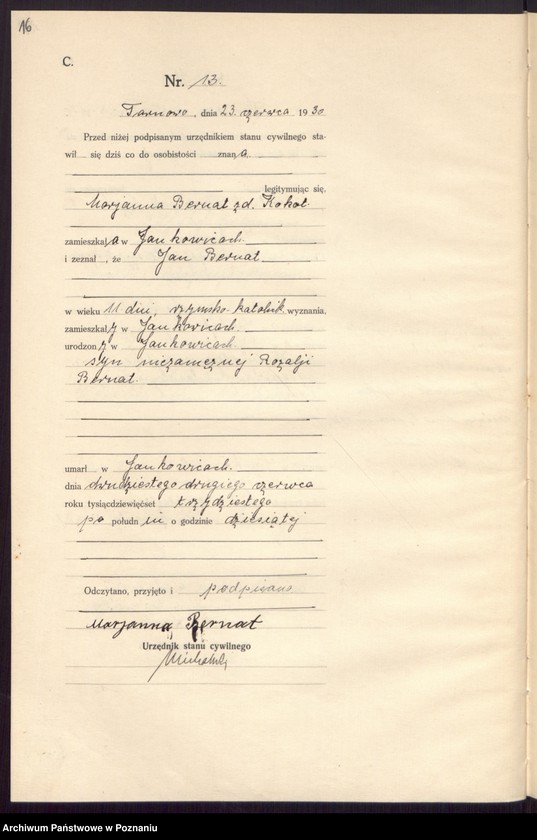 16
C.
Nr. 13.
Tarnowo, dnia 23. czerwca 1930
Przed niżej podpisanym urzędnikiem stanu cywilnego sta-
wił się dziś co do osobistości znana
legitymując się.
Marjanna Bernat zd. Kokot
zamieszkała w Jankowicach.
i zeznał, że Jan Bernat
w wieku 11 dni, rzymsko-katolik wyznania,
zamieszkały w Jankowicach.
urodzony w Jankowicach
syn niezamężnej Rozalji
Bernat.
umarł w Jankowicach.
dnia dwudziestego drugiego czerwca
roku tysiącdziewięćset trzydziestego
po południu o godzinie dziesiątej
Odczytano, przyjęto i podpisano
Marjanna Bernat
Urzędnik stanu cywilnego
Archiwum Państwowe w Poznaniu